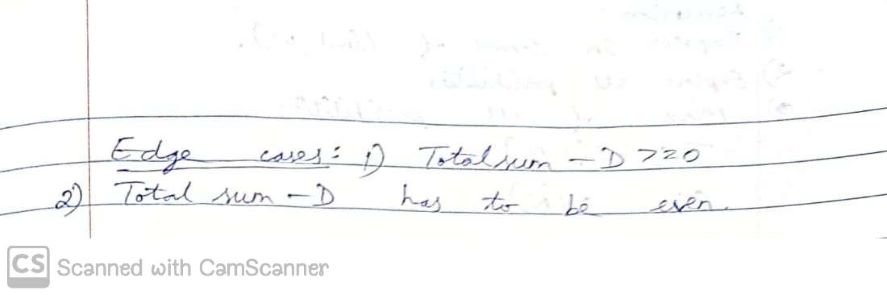 Edge cases: 1) Total sum - D >=0
2) Total sum - D has to be even.
CS Scanned with CamScanner